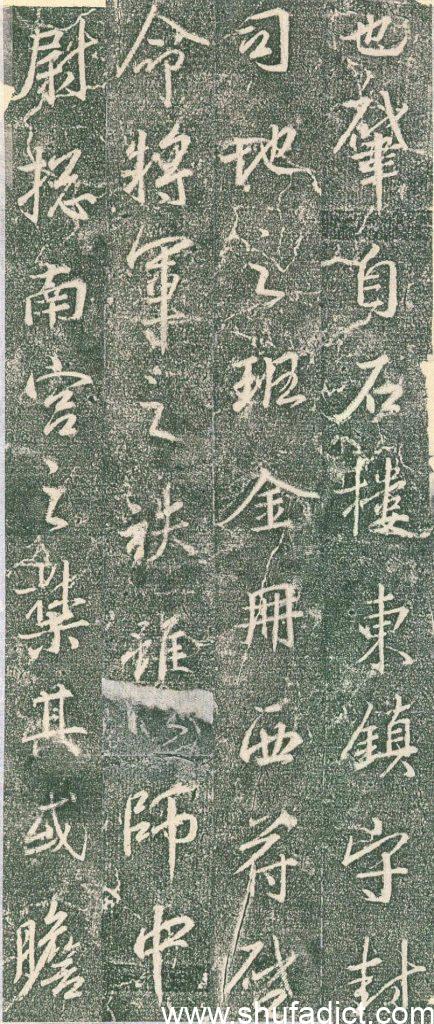 也肇自石樓東鎮守封
司地之班金冊西苻啓
命將軍之秩雖師中
尉揔南宮之其或瞻
www.shufadict.com